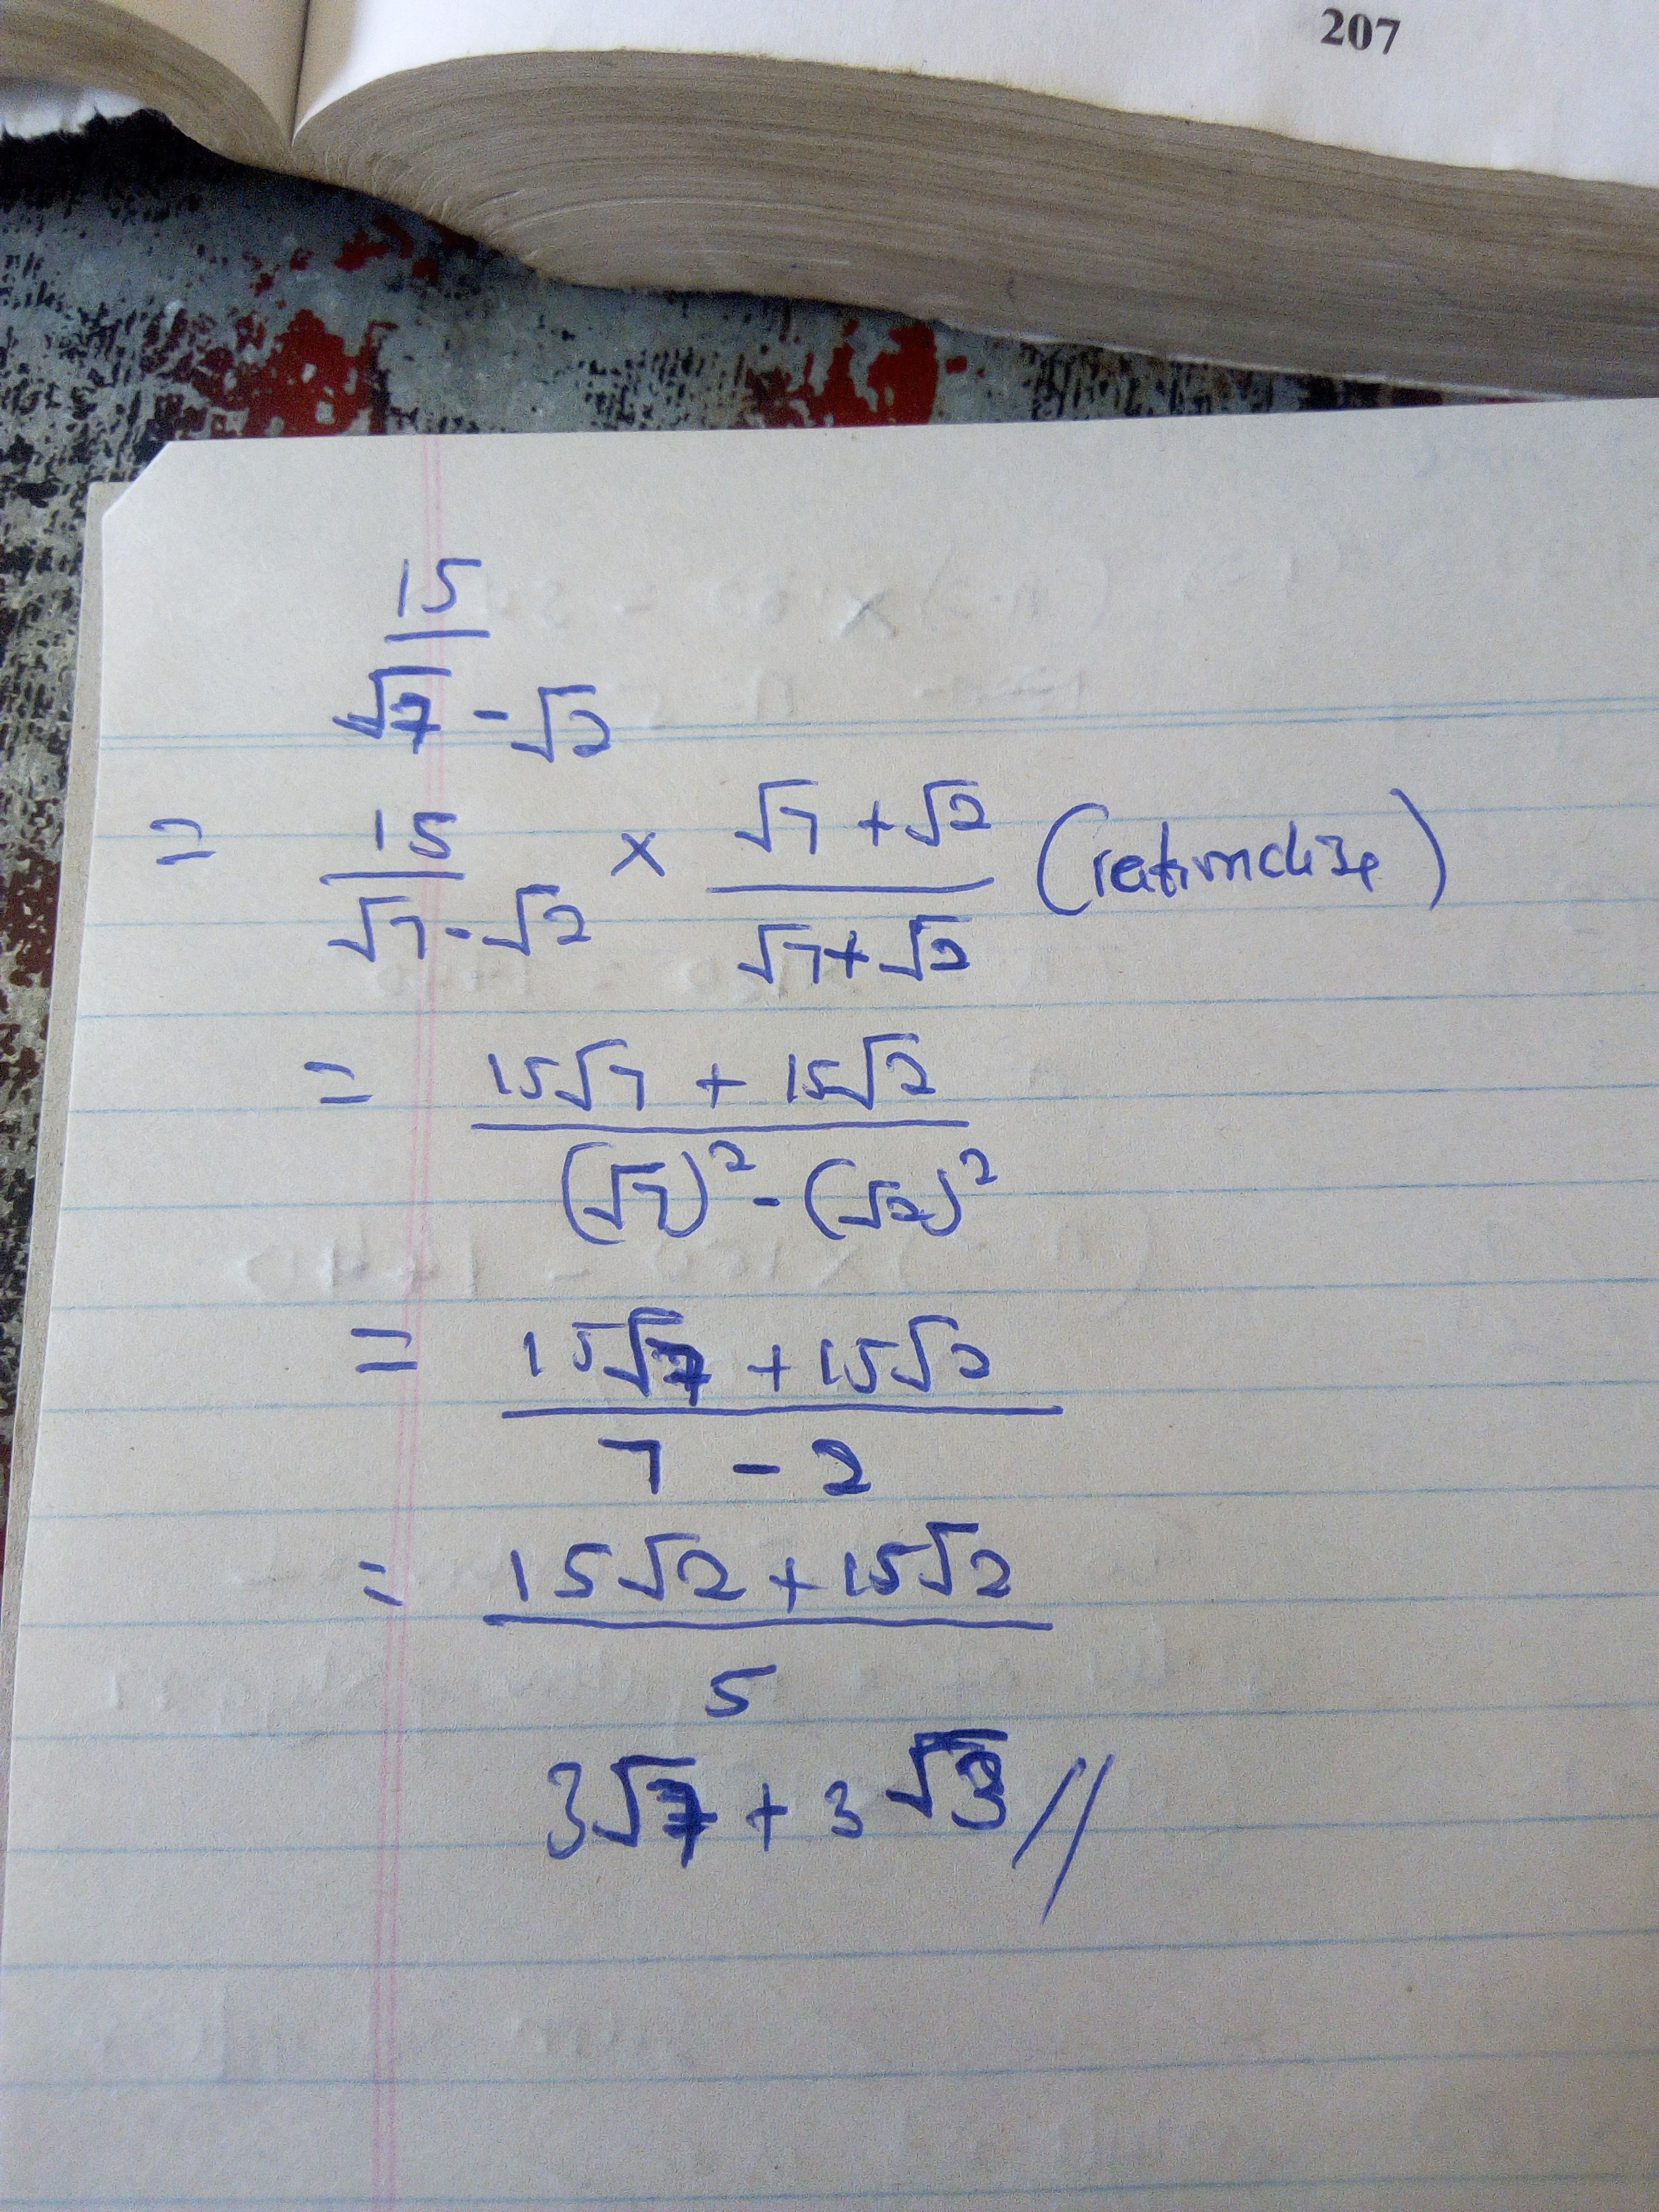 207
15
√7 - √2
= 15 × √7 + √2 (rationalize)
√7 - √2 √7 + √2
= 15√7 + 15√2
(√7)² - (√2)²
= 15√7 + 15√2
7 - 2
= 15√2 + 15√2
5
3√7 + 3√3 //